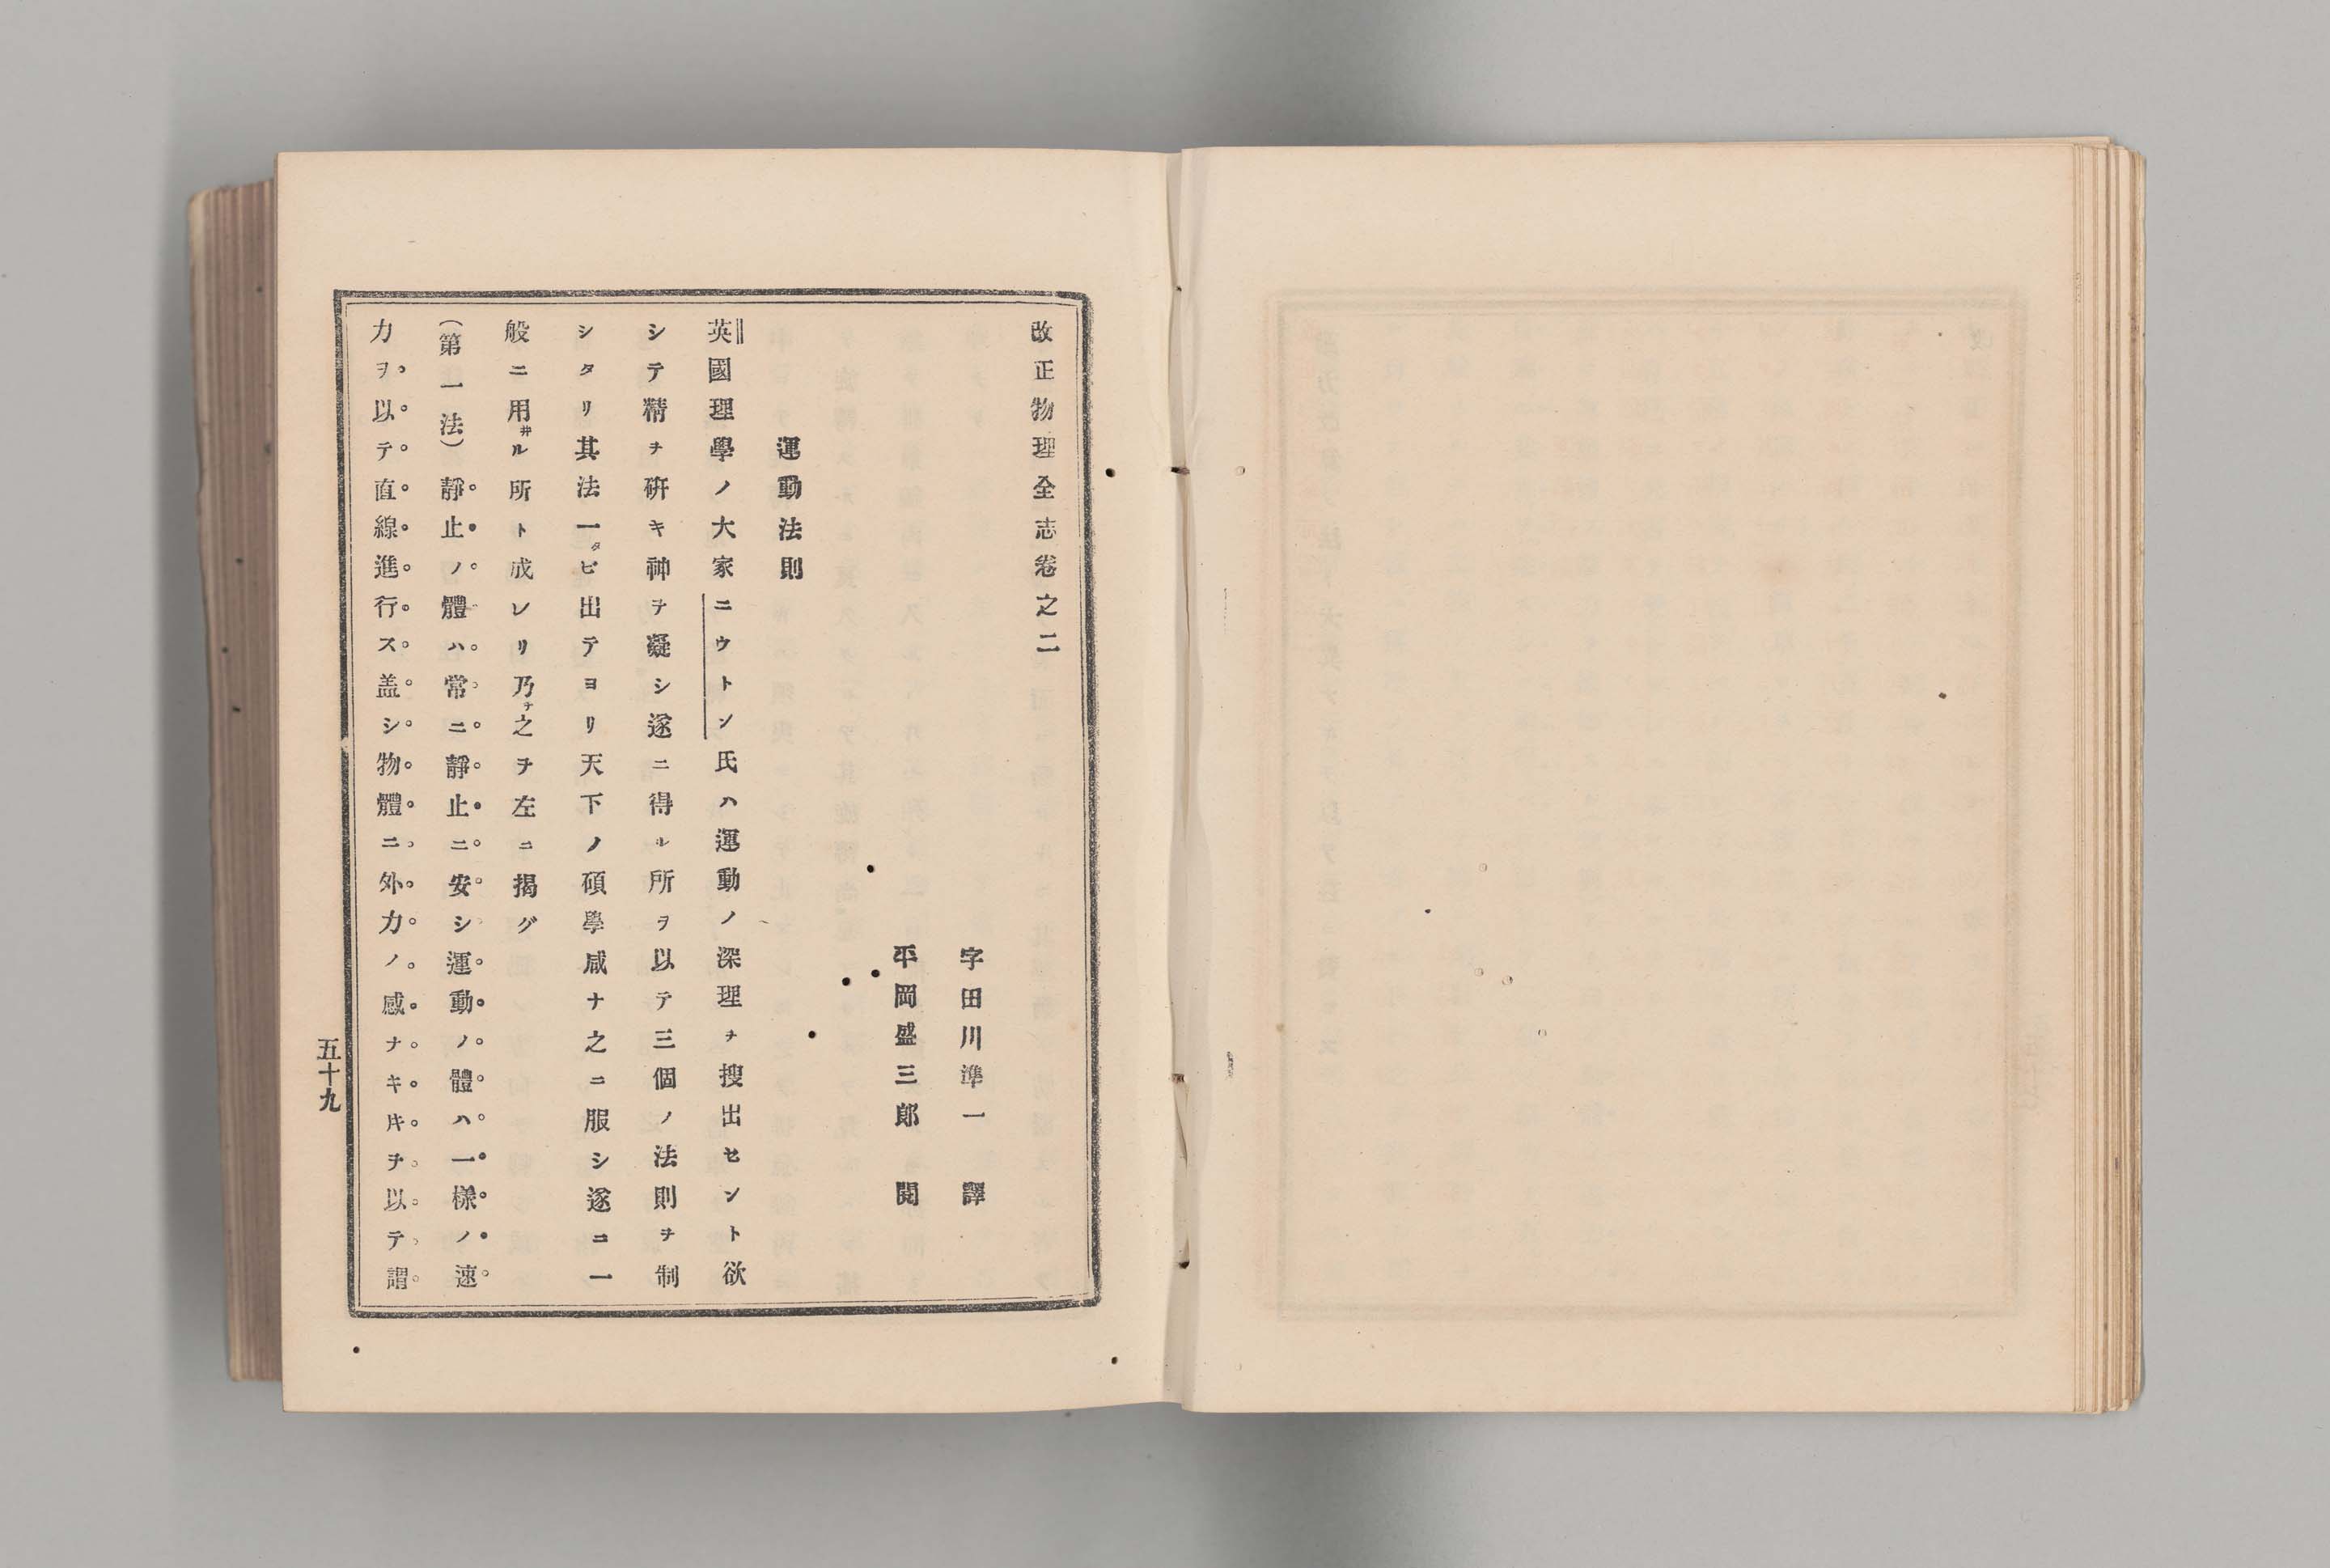 改正物理全志卷之二
宇田川準一　譯
平岡盛三郎　閱
運動法則
英國理學ノ大家ニウトン氏ハ運動ノ深理ヲ搜出セント欲
シテ精ヲ研キ神ヲ凝シ遂ニ得ル所ヲ以テ三個ノ法則ヲ制
シタリ其法一タビ出テヨリ天下ノ碩學咸ナ之ニ服シ遂ニ一
般ニ用井ル所ト成レリ乃チ之ヲ左ニ揭グ
(第一法)靜止ノ體ハ常ニ靜止ニ安シ運動ノ體ハ一樣ノ速
力ヲ以テ直線進行ス盖シ物體ニ外力ノ感ナキ𪜈ヲ以テ謂
五十九